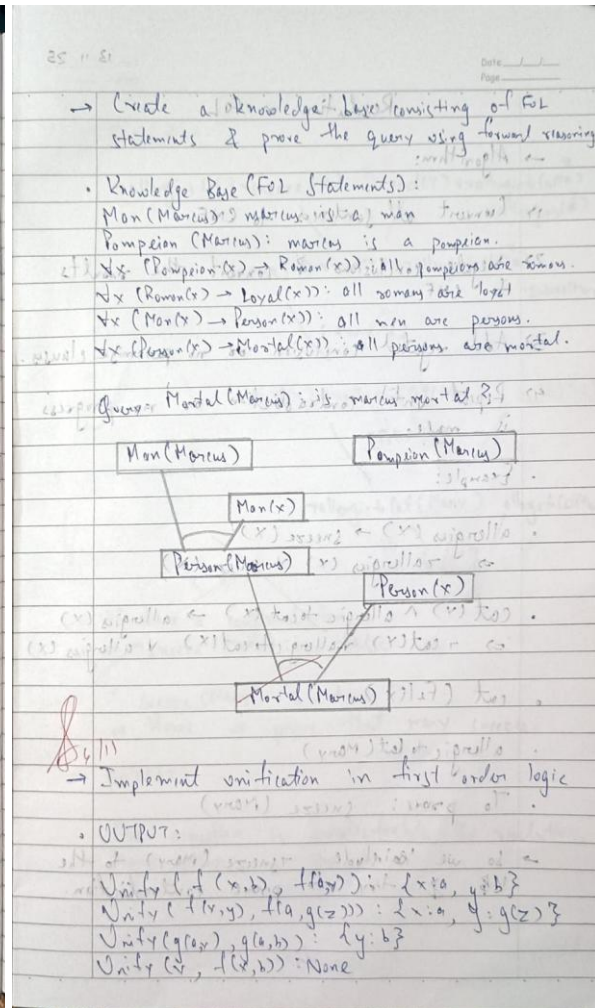 Date
Page
→ Create a knowledge base consisting of FOL
statements & prove the query using forward reasoning
• Knowledge Base (FOL Statements):
Man (Marcus): marcus is a man
Pompeion (Marcus): marcus is a pompeian.
∀x (Pompeion (x) → Roman (x)): all pompeions are romans.
∀x (Roman(x) → Loyal(x)): all romans are loyal
∀x (Man(x) → Person(x)): all men are persons.
∀x (Person(x) → Mortal(x)): all persons are mortal.
Query: Mortal (Marcus): is marcus mortal?
Man (Marcus)
Pompeion (Marcus)
Man(x)
Person (Marcus)
Person (x)
Mortal (Marcus)
→ Implement unification in first order logic
• OUTPUT:
Unify (f(x,b), f(a,y)): {x:a, y:b}
Unify (f(x,y), f(a,g(z))): {x:a, y:g(z)}
Unify (g(a,y), g(a,b)): {y:b}
Unify (x, f(x,b)): None